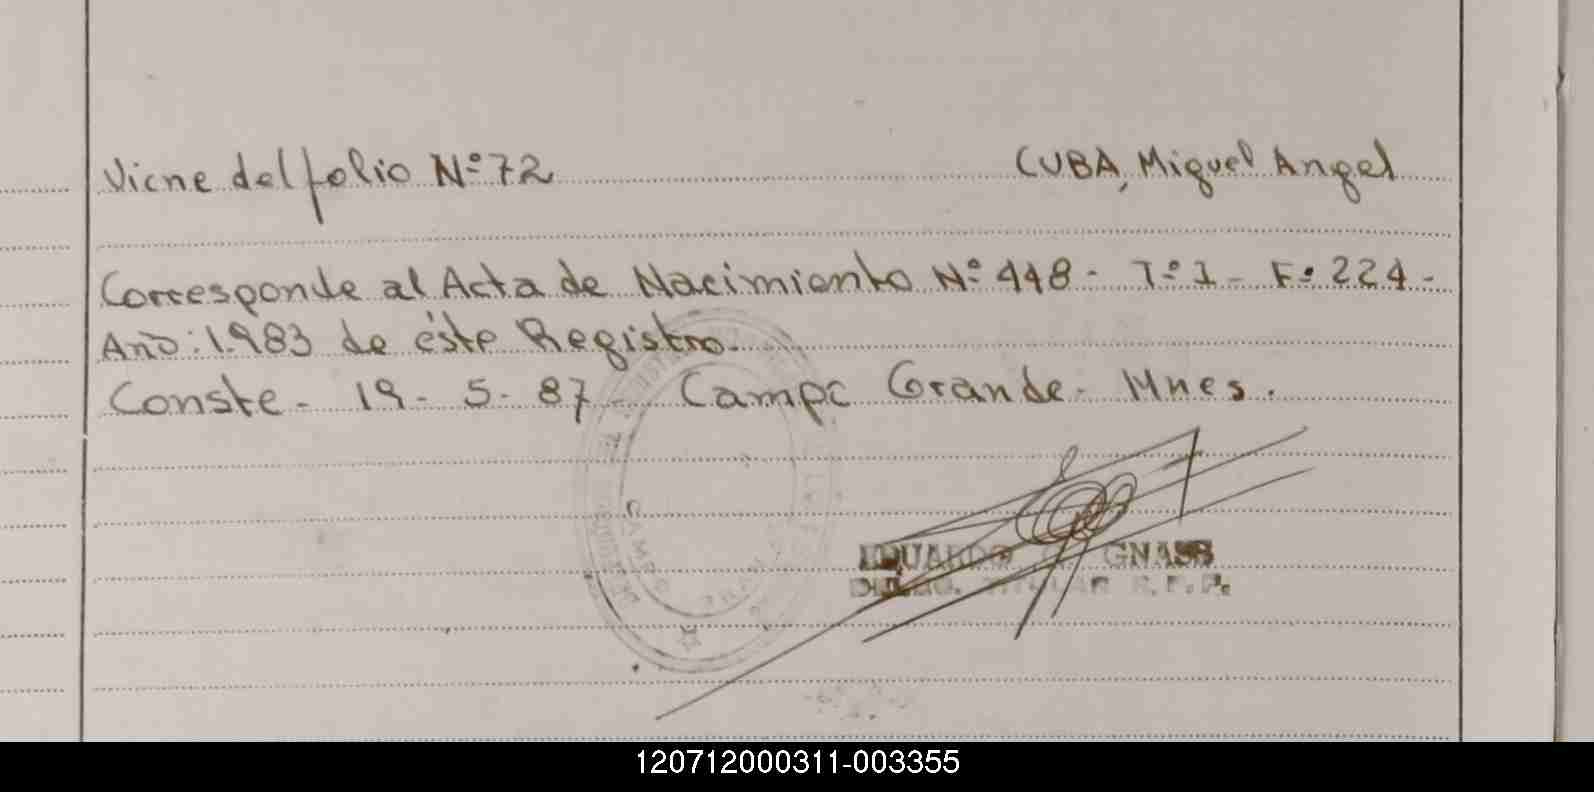 Viene del folio Nº 72 CUBA, Miguel Angel
Corresponde al Acta de Nacimiento Nº 448 - Tº I - Fº 224 -
Año: 1.983 de éste Registro.
Conste - 19 - 5 - 87 - Campo Grande - Mnes.
CAMPO
EDUARDO GNASS
TITULAR R. P. P.
120712000311-003355